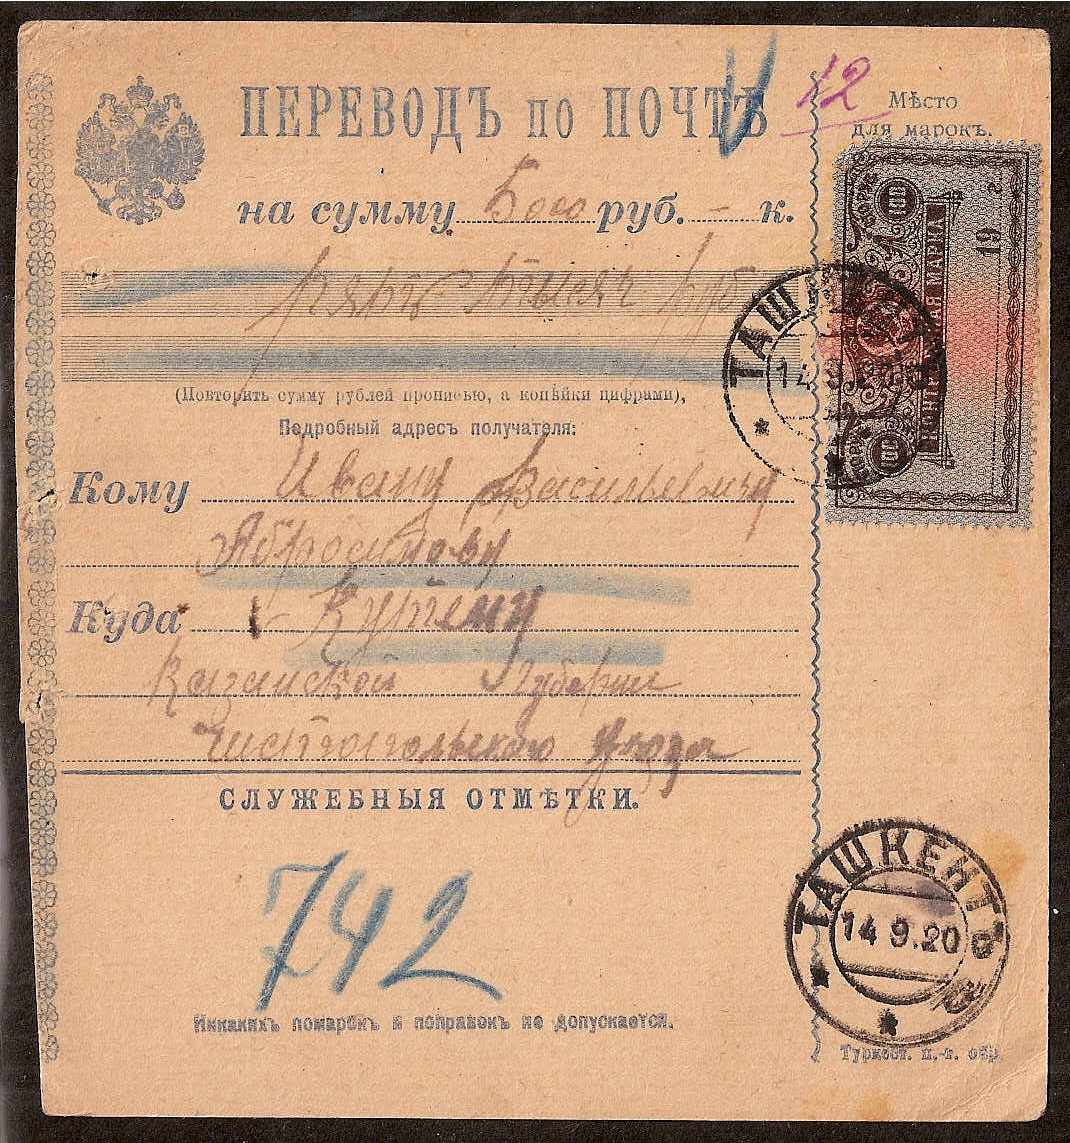 ПЕРЕВОДЪ по ПОЧТѢ
12
Мѣсто
для марокъ.
на сумму 5000 руб. - к.
пять тысяч руб
(Повторить сумму рублей прописью, а копѣйки цифрами),
Подробный адресъ получателя:
Кому Ивану Васильевичу
Абросимову
Куда
Казанской Губерніи
Чистопольскаго Уезда
СЛУЖЕБНЫЯ ОТМѢТКИ.
742
Никакихъ помарокъ и поправокъ не допускается.
Туркест. п.-т. обр
100
19 г.
КОНТРОЛЬНАЯ МАРКА
100
ТАШКЕНТЪ
ТАШКЕНТЪ
14 9.20